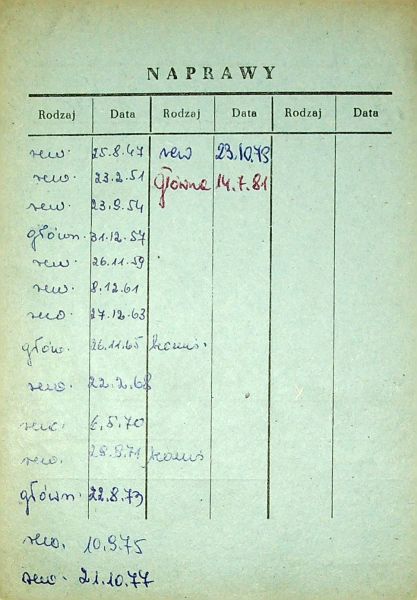 NAPRAWY
Rodzaj Data Rodzaj Data Rodzaj Data
rew. 25.8.47 rew 23.10.79
rew. 23.2.51 główna 14.7.81
rew. 23.9.54
główn. 31.12.57
rew. 26.11.59
rew. 8.12.61
rew. 27.12.63
głów. 26.11.65
rew. 22.2.68
rew. 6.5.70
rew. 28.9.71
główn. 22.8.73
rew. 10.9.75
rew. 21.10.77